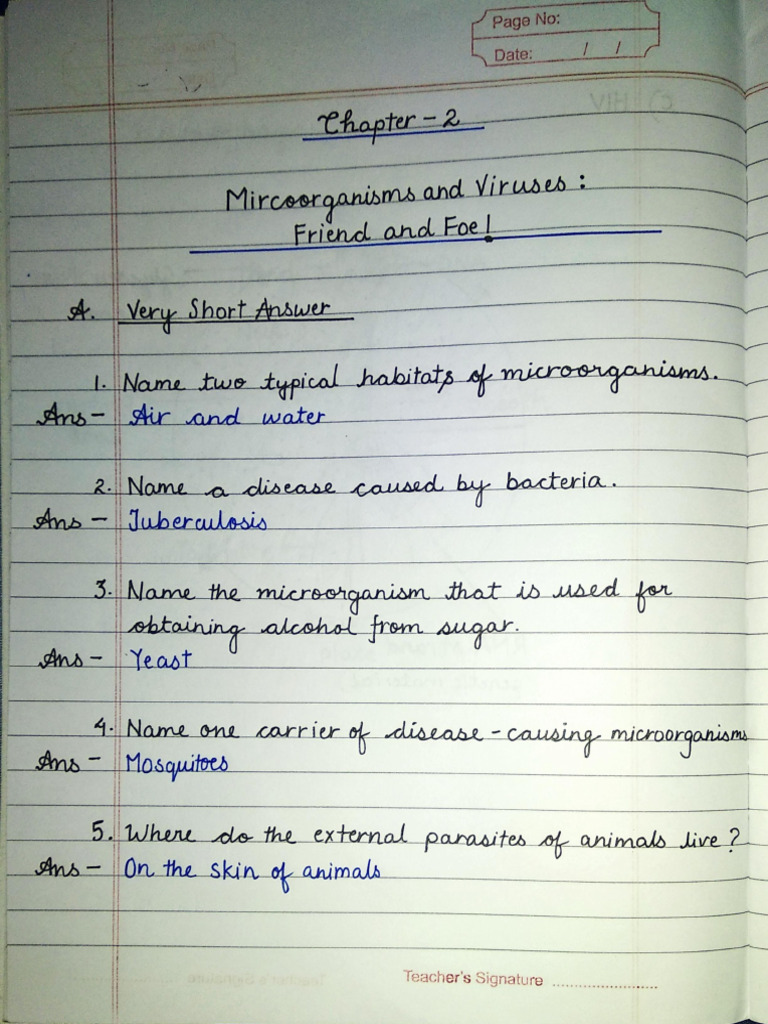 Page No:
Date: / /
Chapter - 2
Mircoorganisms and Viruses :
Friend and Foe!
A. Very Short Answer
1. Name two typical habitats of microorganisms.
Ans - Air and water
2. Name a disease caused by bacteria.
Ans - Tuberculosis
3. Name the microorganism that is used for
obtaining alcohol from sugar.
Ans - Yeast
4. Name one carrier of disease - causing microorganisms
Ans - Mosquitoes
5. Where do the external parasites of animals live?
Ans - On the skin of animals
Teacher's Signature ........................